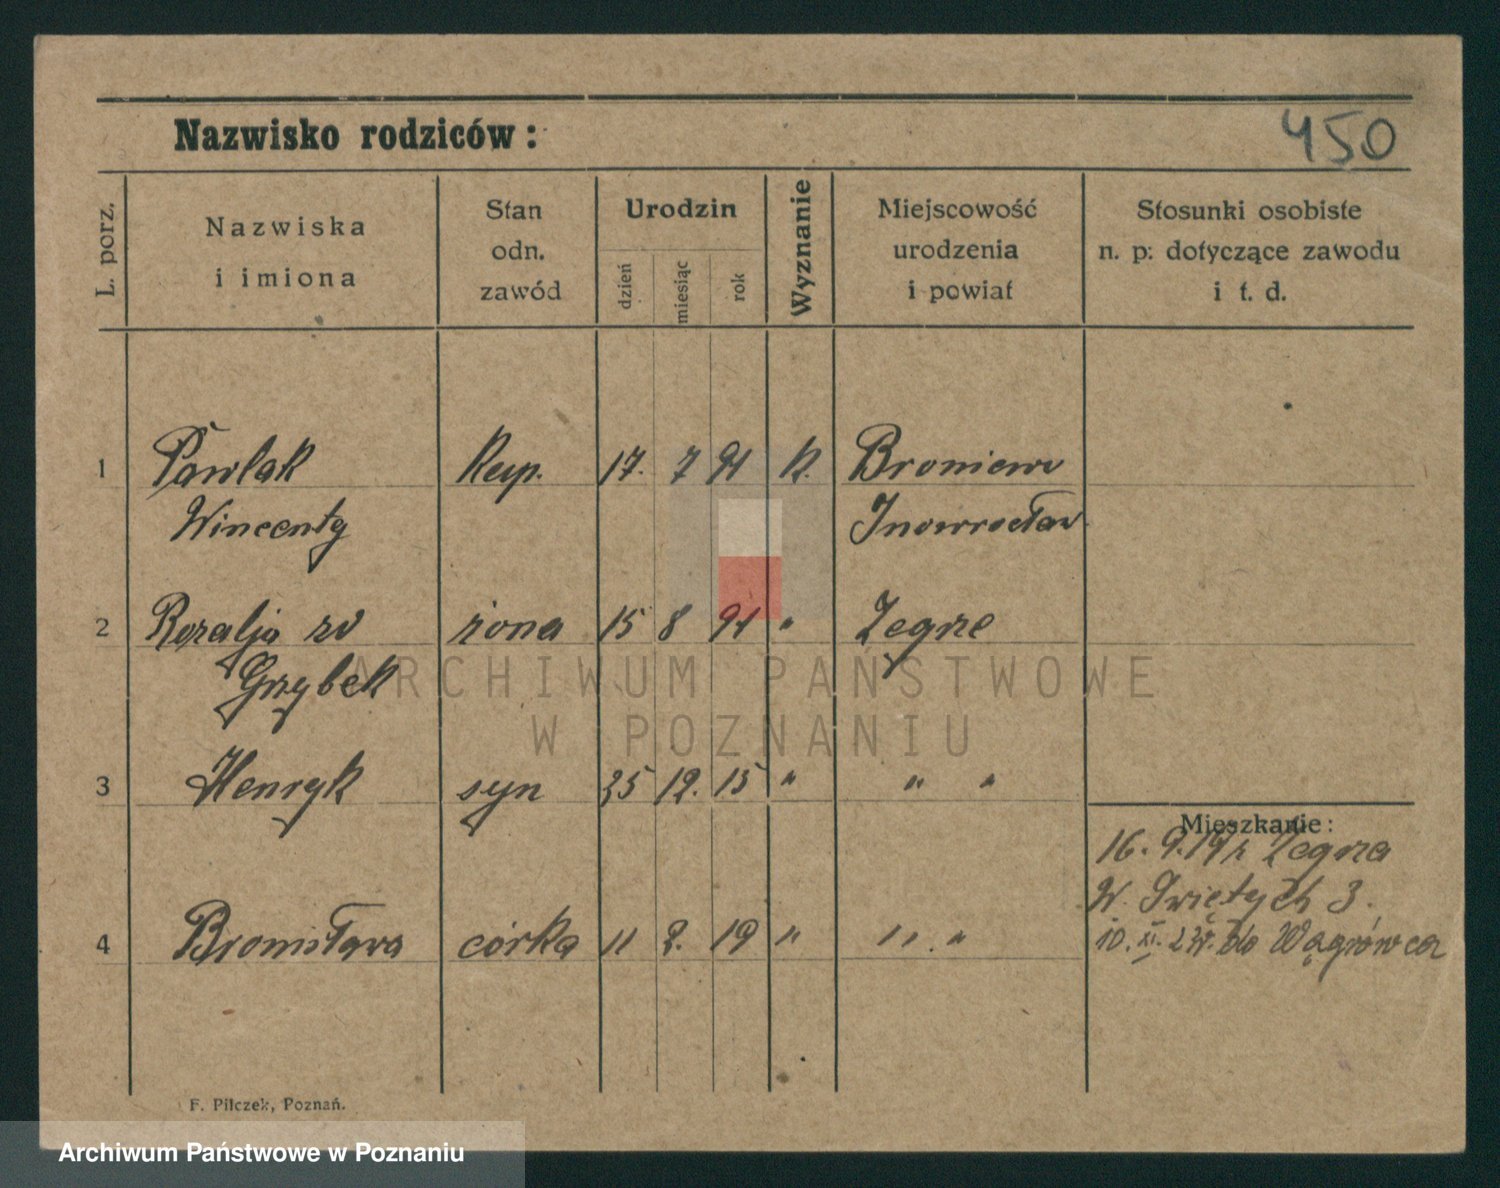 450
Nazwisko rodziców:
L. porz.
Nazwiska
i imiona
Stan
odn.
zawód
Urodzin
dzień
miesiąc
rok
Wyznanie
Miejscowość
urodzenia
i powiat
Stosunki osobiste
n. p: dotyczące zawodu
i t. d.
1 Pawlak Kup. 17. 7 91 k. Broniewo
Wincenty Inowrocław
2 Rozalja żona 15 8 91 " Żegrze
Grzybek
ARCHIWUM PAŃSTWOWE
W POZNANIU
3 Henryk syn 25 12. 15 " " "
Mieszkanie:
16. 9. 19 r Żegrza
W. Świętych 3.
4 Bronisława córka 11 2. 19 " " "
10. XI. do Wągrówca
F. Pilczek, Poznań.
Archiwum Państwowe w Poznaniu